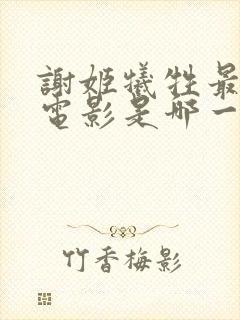 謝姬犧牲最
電影是哪一
竹香梅影